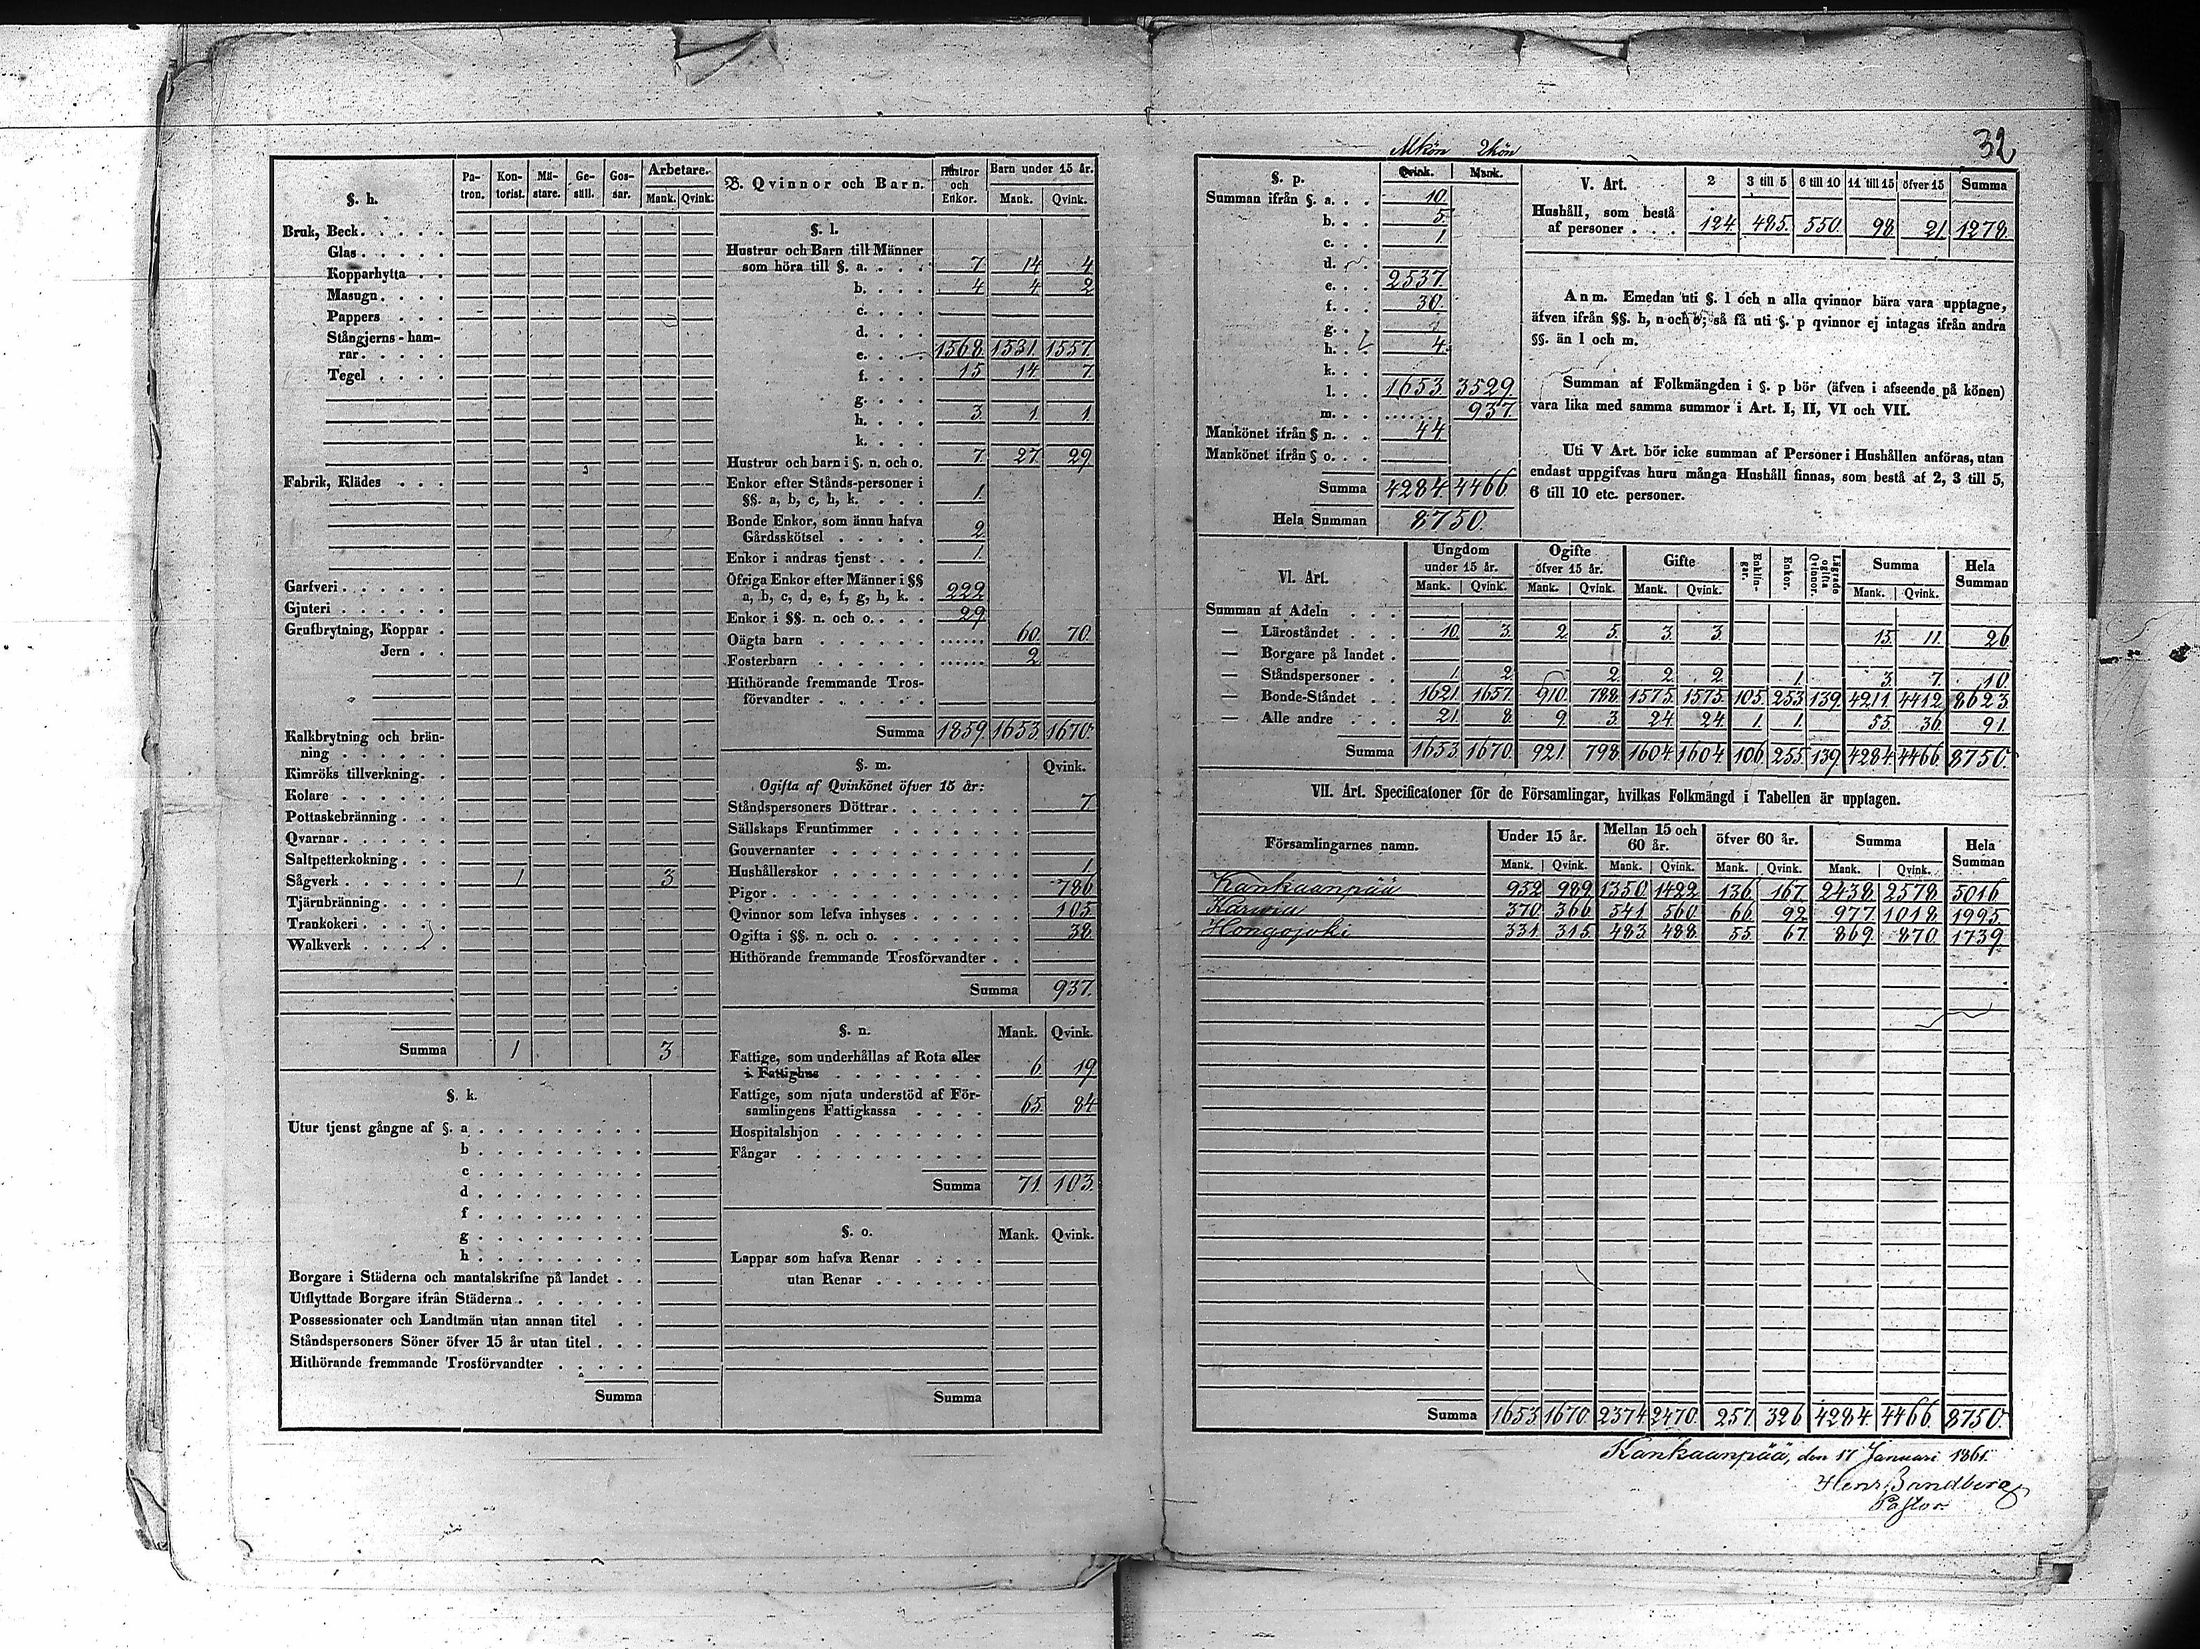 32
§. h.
Pa-tron. Kon-torist. Mä-stare. Ge-säll. Gos-sar. Arbetare.
Mank. Qvink.
Bruk, Beck . . . . .
Glas . . . . .
Kopparhytta . .
Masugn . . . .
Pappers . . .
Stångjerns-ham-
rar . . . .
Tegel . . . .
Fabrik, Klädes . . .
Garfveri . . . . . .
Gjuteri . . . . . .
Grufbrytning, Koppar .
Jern . .
Kalkbrytning och brän-
ning . . . . .
Kimröks tillverkning . .
Kolare . . . . . .
Pottaskebränning . . .
Qvarnar . . . . . .
Saltpetterkokning . . .
Sågverk . . . . . 1 3
Tjärubränning . . . .
Trankokeri . . . . .
Walkverk . . . .
Summa 1 3
§. k.
Utur tjenst gångne af §. a . . . . . . . . .
b . . . . . . . . .
c . . . . . . . . .
d . . . . . . . . .
f . . . . . . . . .
g . . . . . . . . .
h . . . . . . . . .
Borgare i Städerna och mantalskrifne på landet . .
Utflyttade Borgare ifrån Städerna . . . . . . .
Possessionater och Landtmän utan annan titel . .
Ståndspersoners Söner öfver 15 år utan titel . . .
Hithörande fremmande Trosförvandter . . . . .
Summa
B. Qvinnor och Barn. Hustror och Enkor. Barn under 15 år.
Mank. Qvink.
§. l.
Hustrur och Barn till Männer
som höra till §. a. . . . 7 14 4
b. . . . 4 4 2
c. . . .
d. . . .
e. . . . 1568 1531 1557
f. . . . 15 14 7
g. . . .
h. . . . 3 1 1
k. . . .
Hustrur och barn i §. n. och o. 7 27 29
Enkor efter Stånds-personer i
§§. a, b, c, h, k. . . . 1
Bonde Enkor, som ännu hafva
Gårdsskötsel . . . . . 2
Enkor i andras tjenst . . . 1
Öfriga Enkor efter Männer i §§
a, b, c, d, e, f, g, h, k. . 222
Enkor i §§. n. och o. . . . 29
Oägta barn . . . . . ...... 60 70
Fosterbarn . . . . . . ...... 2
Hithörande fremmande Tros-
förvandter . . . . . .
Summa 1859 1653 1670
§. m. Qvink.
Ogifta af Qvinkönet öfver 15 år:
Ståndspersoners Döttrar . . . . . . . . 7
Sällskaps Fruntimmer . . . . . . .
Gouvernanter . . . . . . . . . .
Hushållerskor . . . . . . . . . . 1
Pigor . . . . . . . . . . . . 786
Qvinnor som lefva inhyses . . . . . . 105
Ogifta i §§. n. och o. . . . . . . . . 38
Hithörande fremmande Trosförvandter . .
Summa 937.
§. n. Mank. Qvink.
Fattige, som underhållas af Rota eller
i Fattighus . . . . . . . . 6 19
Fattige, som njuta understöd af För-
samlingens Fattigkassa . . . . 65 84
Hospitalshjon . . . . . . . .
Fångar . . . . . . . . . .
Summa 71. 103.
§. o. Mank. Qvink.
Lappar som hafva Renar . . . .
utan Renar . . . . . .
Summa
Mkön Qkön
§. p. Qvink. Mank.
Summan ifrån §. a. . . 10
b. . . 5
c. . . 1
d. . .
e. . . 2537
f. . . 30
g. . .
h. . . 4
k. . .
l. . . 1653 3529
m. . . ....... 937
Mankönet ifrån § n. . . 44
Mankönet ifrån § o. . .
Summa 4284 4466
Hela Summan 8750
V. Art. 2 3 till 5 6 till 10 11 till 15 öfver 15 Summa
Hushåll, som bestå
af personer . . . 124 485 550 98 21 1278
Anm. Emedan uti §. l och n alla qvinnor böra vara upptagne,
äfven ifrån §§. h, n och o; så få uti §. p qvinnor ej intagas ifrån andra
§§. än l och m.
Summan af Folkmängden i §. p bör (äfven i afseende på könen)
vara lika med samma summor i Art. I, II, VI och VII.
Uti V Art. bör icke summan af Personer i Hushållen anföras, utan
endast uppgifvas huru många Hushåll finnas, som bestå af 2, 3 till 5,
6 till 10 etc. personer.
VI. Art. Ungdom under 15 år. Ogifte öfver 15 år. Gifte Enklingar. Enkor. Lägrade ogifta Qvinnor. Summa Hela Summan
Mank. Qvink. Mank. Qvink. Mank. Qvink. Mank. Qvink.
Summan af Adeln . . .
— Läroståndet . . . 10 3 2 5 3 3 15 11 26
— Borgare på landet .
— Ståndspersoner . . 1 2 2 2 2 1 3 7 10
— Bonde-Ståndet . . 1621 1657 910 788 1575 1575 105 253 139 4211 4412 8623
— Alle andre . . . 21 8 9 3 24 24 1 1 55 36 91
Summa 1653 1670 921 798 1604 1604 106 255 139 4284 4466 8750
VII. Art. Specificatoner för de Församlingar, hvilkas Folkmängd i Tabellen är upptagen.
Församlingarnes namn. Under 15 år. Mellan 15 och 60 år. öfver 60 år. Summa Hela Summan
Mank. Qvink. Mank. Qvink. Mank. Qvink. Mank. Qvink.
Kankaanpää 952 989 1350 1422 136 167 2438 2578 5016
Karvia 370 366 541 560 66 92 977 1018 1995
Hongojoki 331 315 483 488 55 67 869 870 1739
Summa 1653 1670 2374 2470 257 326 4284 4466 8750
Kankaanpää, den 17 Januari 1861.
Henr. Sandberg
Pastor